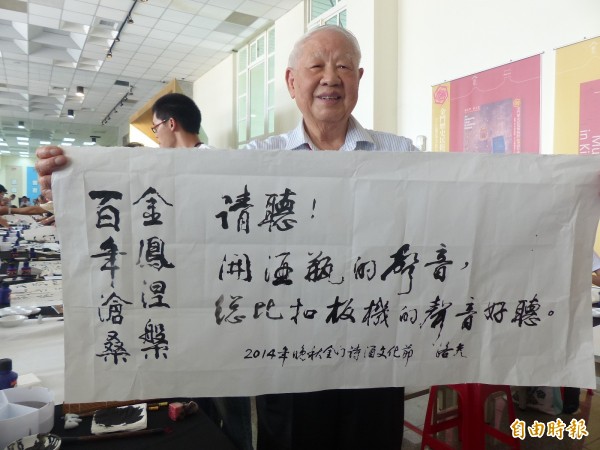 金鳳涅槃
百年滄桑
请聽！
開酒瓶的聲音，
總比扣板機的聲音好聽。
2014年晚秋金门诗酒文化節
自由時報